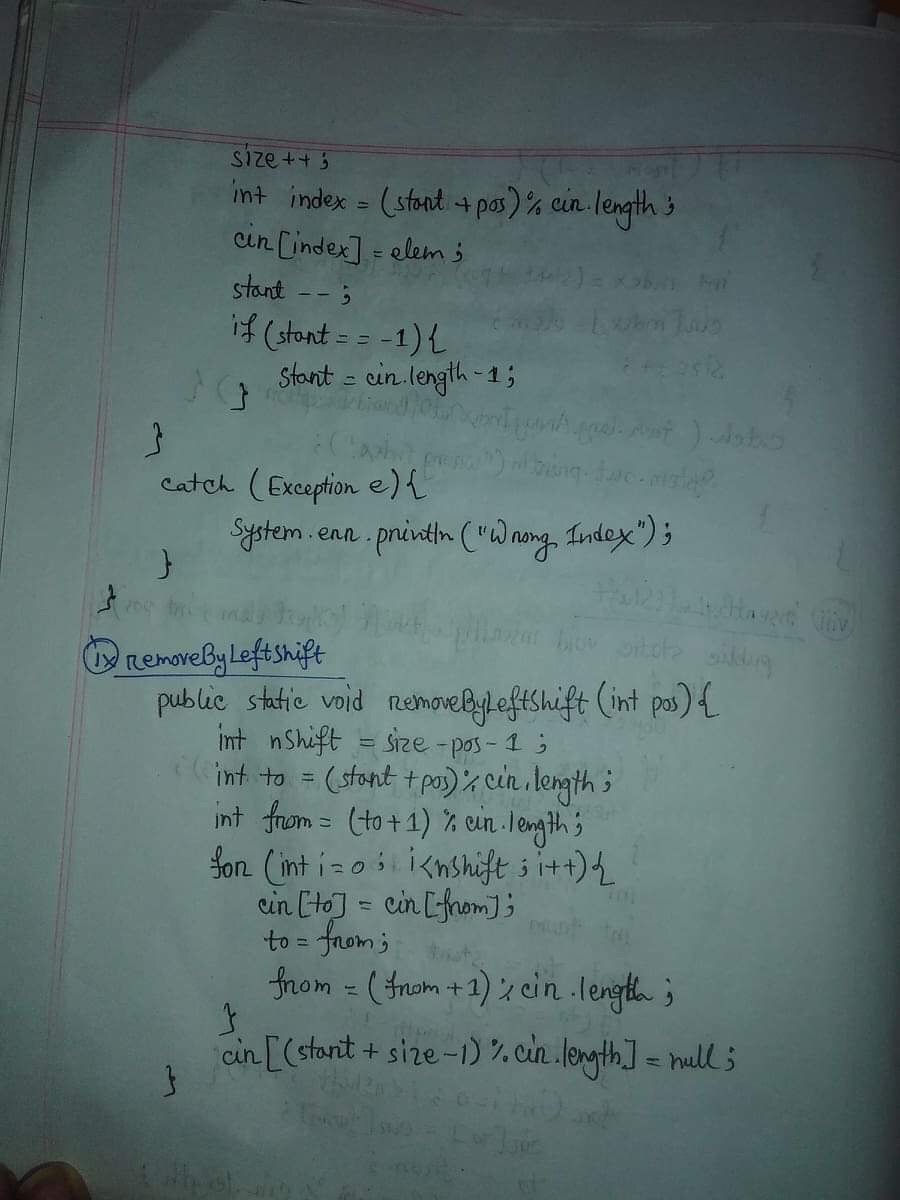 size++;
int index = (start + pos) % cir.length;
cir[index] = elem;
start --;
if (start == -1) {
start = cir.length-1;
}
}
catch (Exception e) {
System.err.println("Wrong Index");
}
}
ix removeByLeftShift
public static void removeByLeftShift (int pos) {
int nShift = size - pos - 1 ;
int to = (start + pos) % cir.length ;
int from = (to+1) % cir.length ;
for (int i=0 ; i<nshift ; i++) {
cir[to] = cir[from];
to = from;
from = (from+1) % cir.length ;
}
cir[(start + size-1) % cir.length] = null ;
}